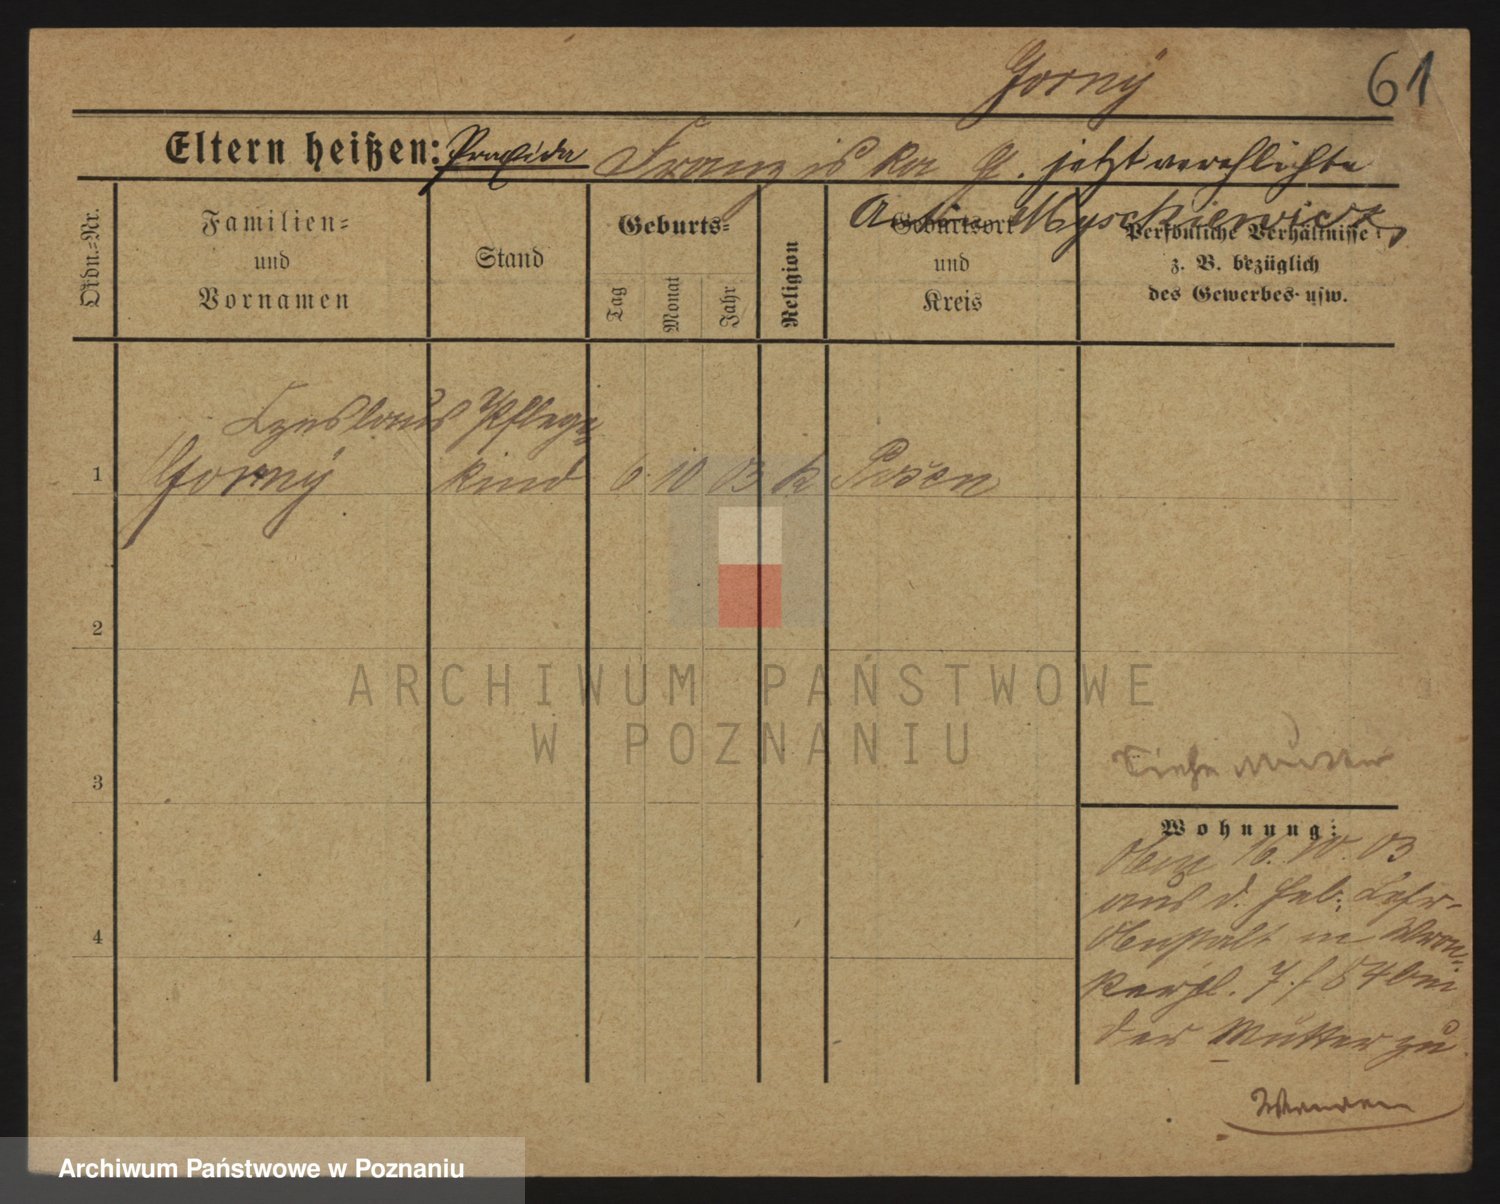 Gorny
61
Eltern heißen: Praxida Franziska G. jetzt verehlichte
A Myschiewicz
Ordn.=Nr.
Familien=
und
Vornamen
Stand
Geburts=
Tag
Monat
Jahr
Religion
Geburtsort
und
Kreis
Persönliche Verhältnisse
z. B. bezüglich
des Gewerbes usw.
Czeslaus Pflege
1 Gorny kind 6 10 03 k Posen
2
3
4
Siehe Mutter
Wohnung:
16. 10. 03
aus d. Heb. Lehr-
Anstalt in Wron-
kerpl. 7 / 54 bei
der Mutter zu
ARCHIWUM PAŃSTWOWE
W POZNANIU
Archiwum Państwowe w Poznaniu